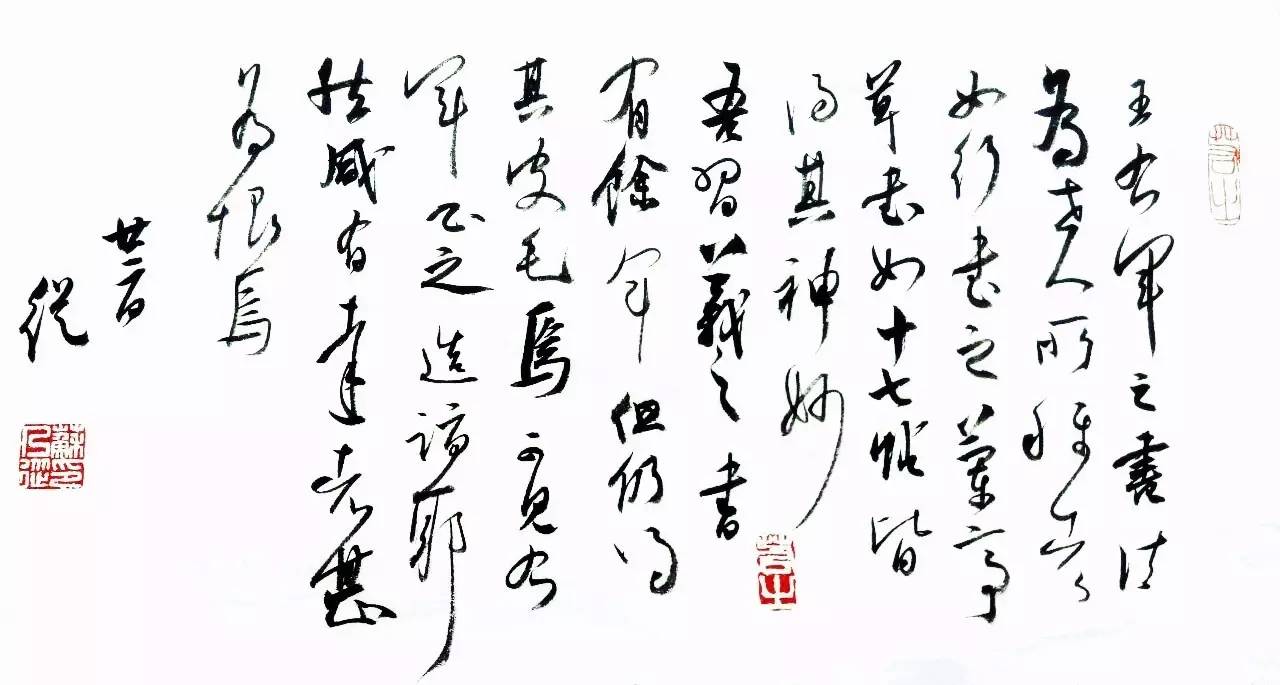 王右軍之書法
為世人所崇
如行書之蘭亭
草書如十七帖皆
得其神妙
吾習羲之書
有餘年但仍得
其皮毛焉可見右
軍之造詣耶
然咸有幸甚
為恨焉
從